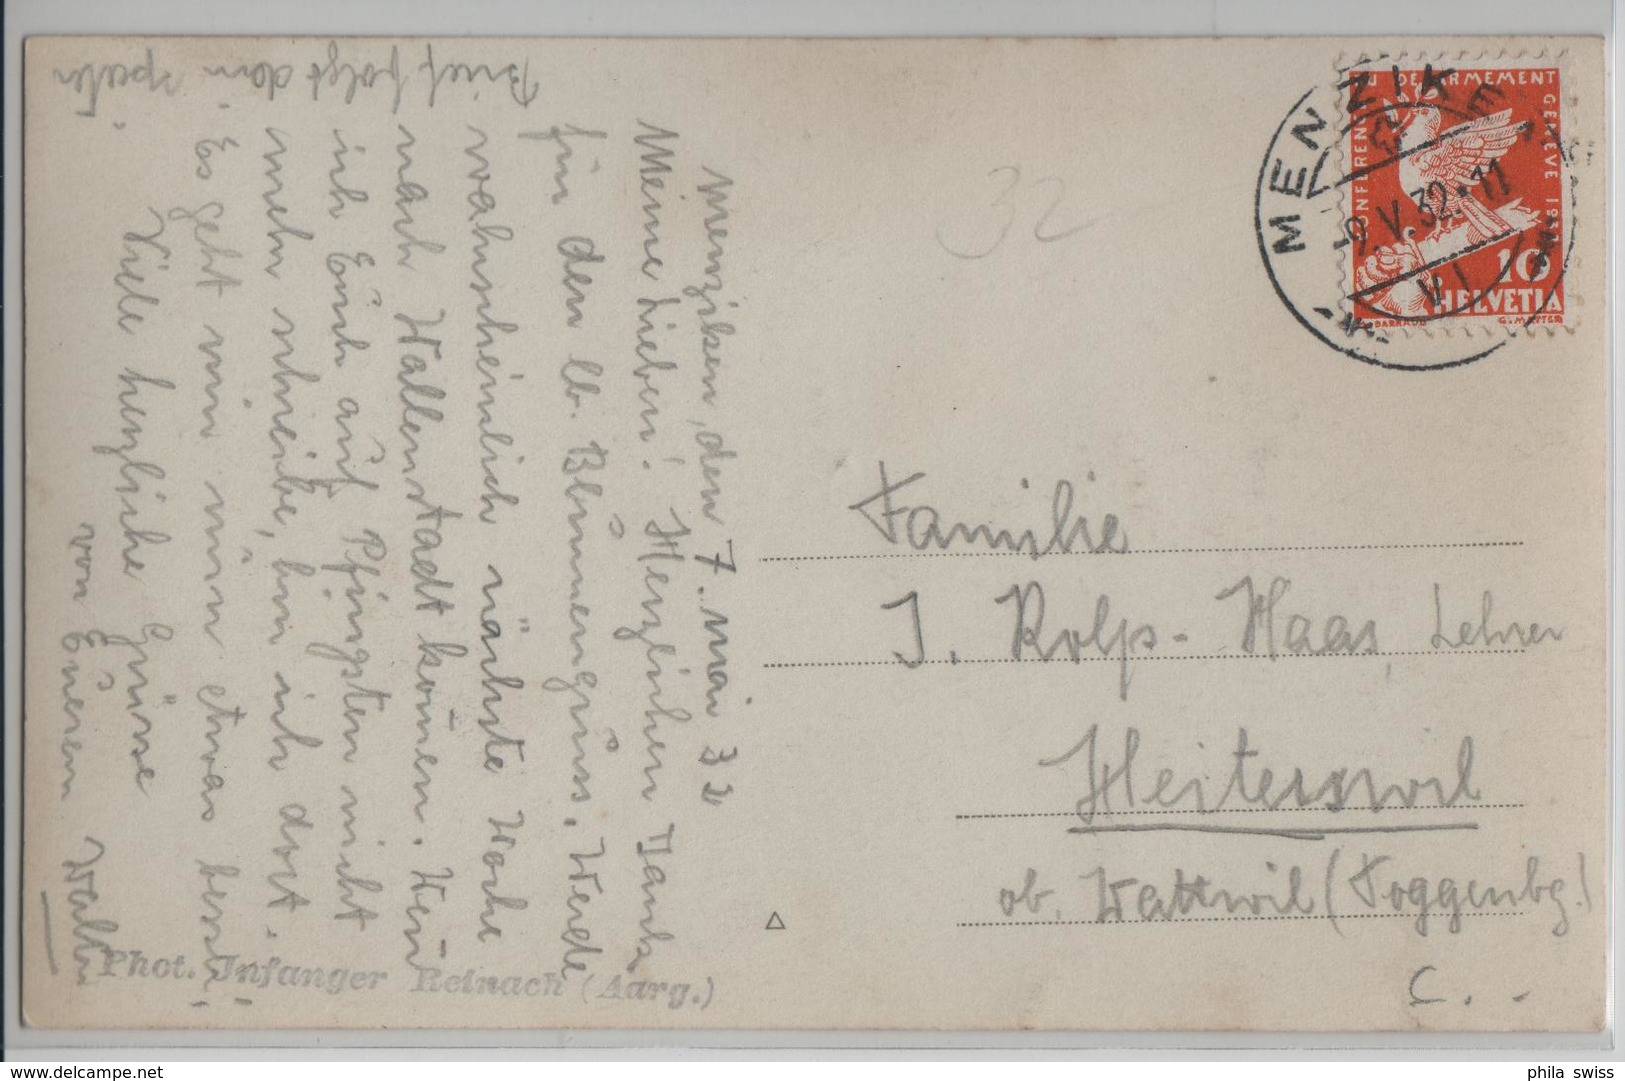 Menziken, den 7. Mai 32
Meine Lieben! Herzlichen Dank
für den lb. Blumengruss. Werde
wahrscheinlich nächste Woche
nach Wallenstadt kommen. Wenn
ich Euch auf Pfingsten nicht
mehr schreibe, bin ich dort.
Es geht mir nun etwas besser.
Viele herzliche Grüsse
von Euerem Walter
Brief folgt dan später.
Phot. Infanger Reinach (Aarg.)
32
MENZIKE
-9.V.32.-11
CONFERENCE DU DESARMEMENT GENEVE 1932
10
HELVETIA
BARRAUD G. MATTER
Familie
J. Kolp-Haas, Lehrer
Heiterswil
ob. Wattwil (Toggenbg.)
phila swiss
www.delcampe.net